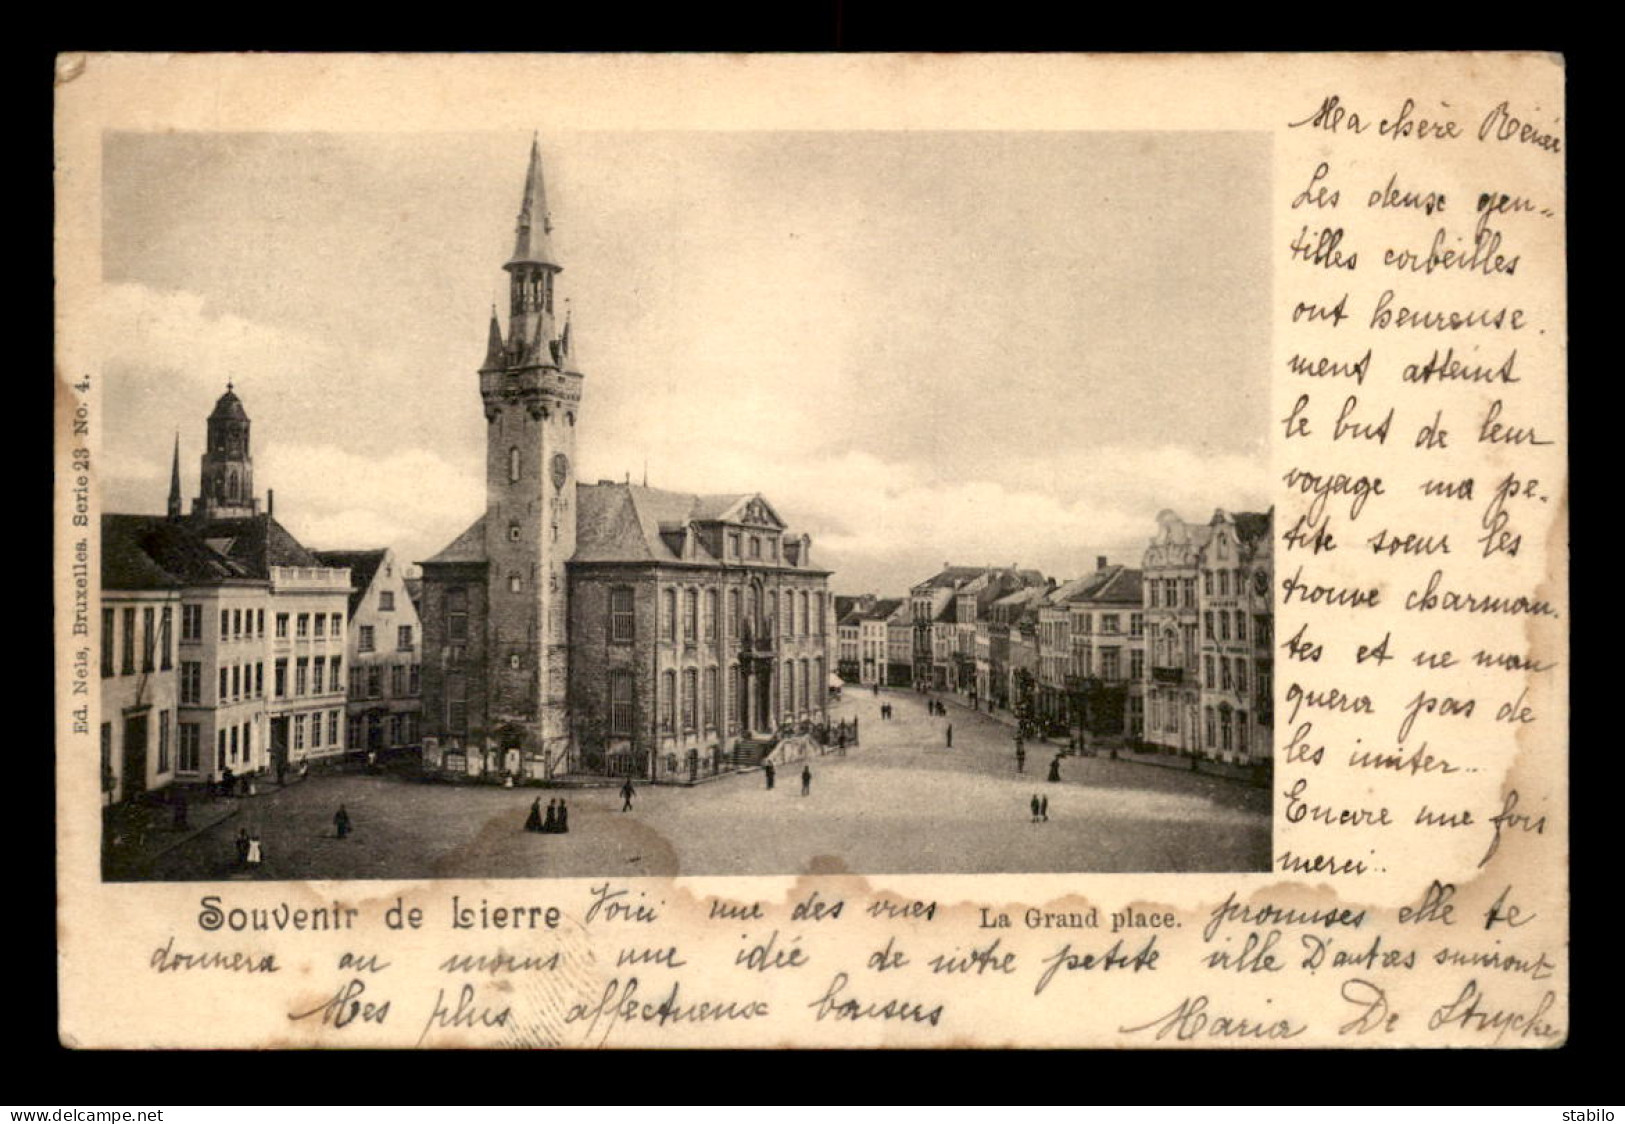 Ma chère Renée
Les deux gen-
tilles corbeilles
ont heureuse.
ment atteint
le but de leur
voyage ma pe-
tite soeur les
trouve charman-
tes et ne man
quera pas de
les imiter..
Encore une fois
merci..
Souvenir de Lierre Voici une des vues La Grand place. promises elle te
donnera au moins une idée de notre petite ville D'autres suivront
Mes plus affectueux baisers Maria De
Ed. Nels, Bruxelles. Serie 23 No. 4.
delcampe.net
stabilo